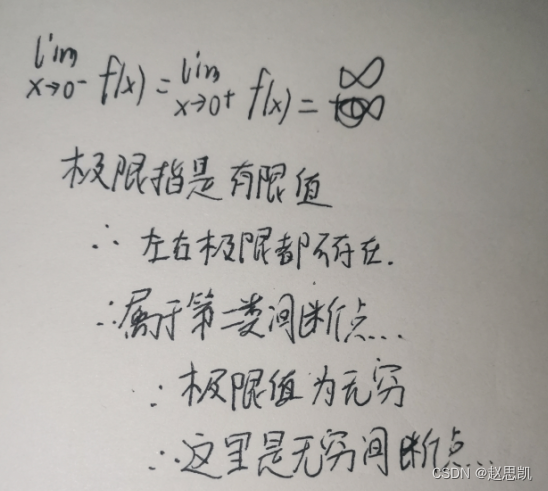 lim x→0⁻ f(x) = lim x→0⁺ f(x) = ∞
极限指是有限值
∴ 左右极限都不存在.
∴属于第二类间断点...
∵极限值为无穷
∴这里是无穷间断点...
CSDN @赵思凯